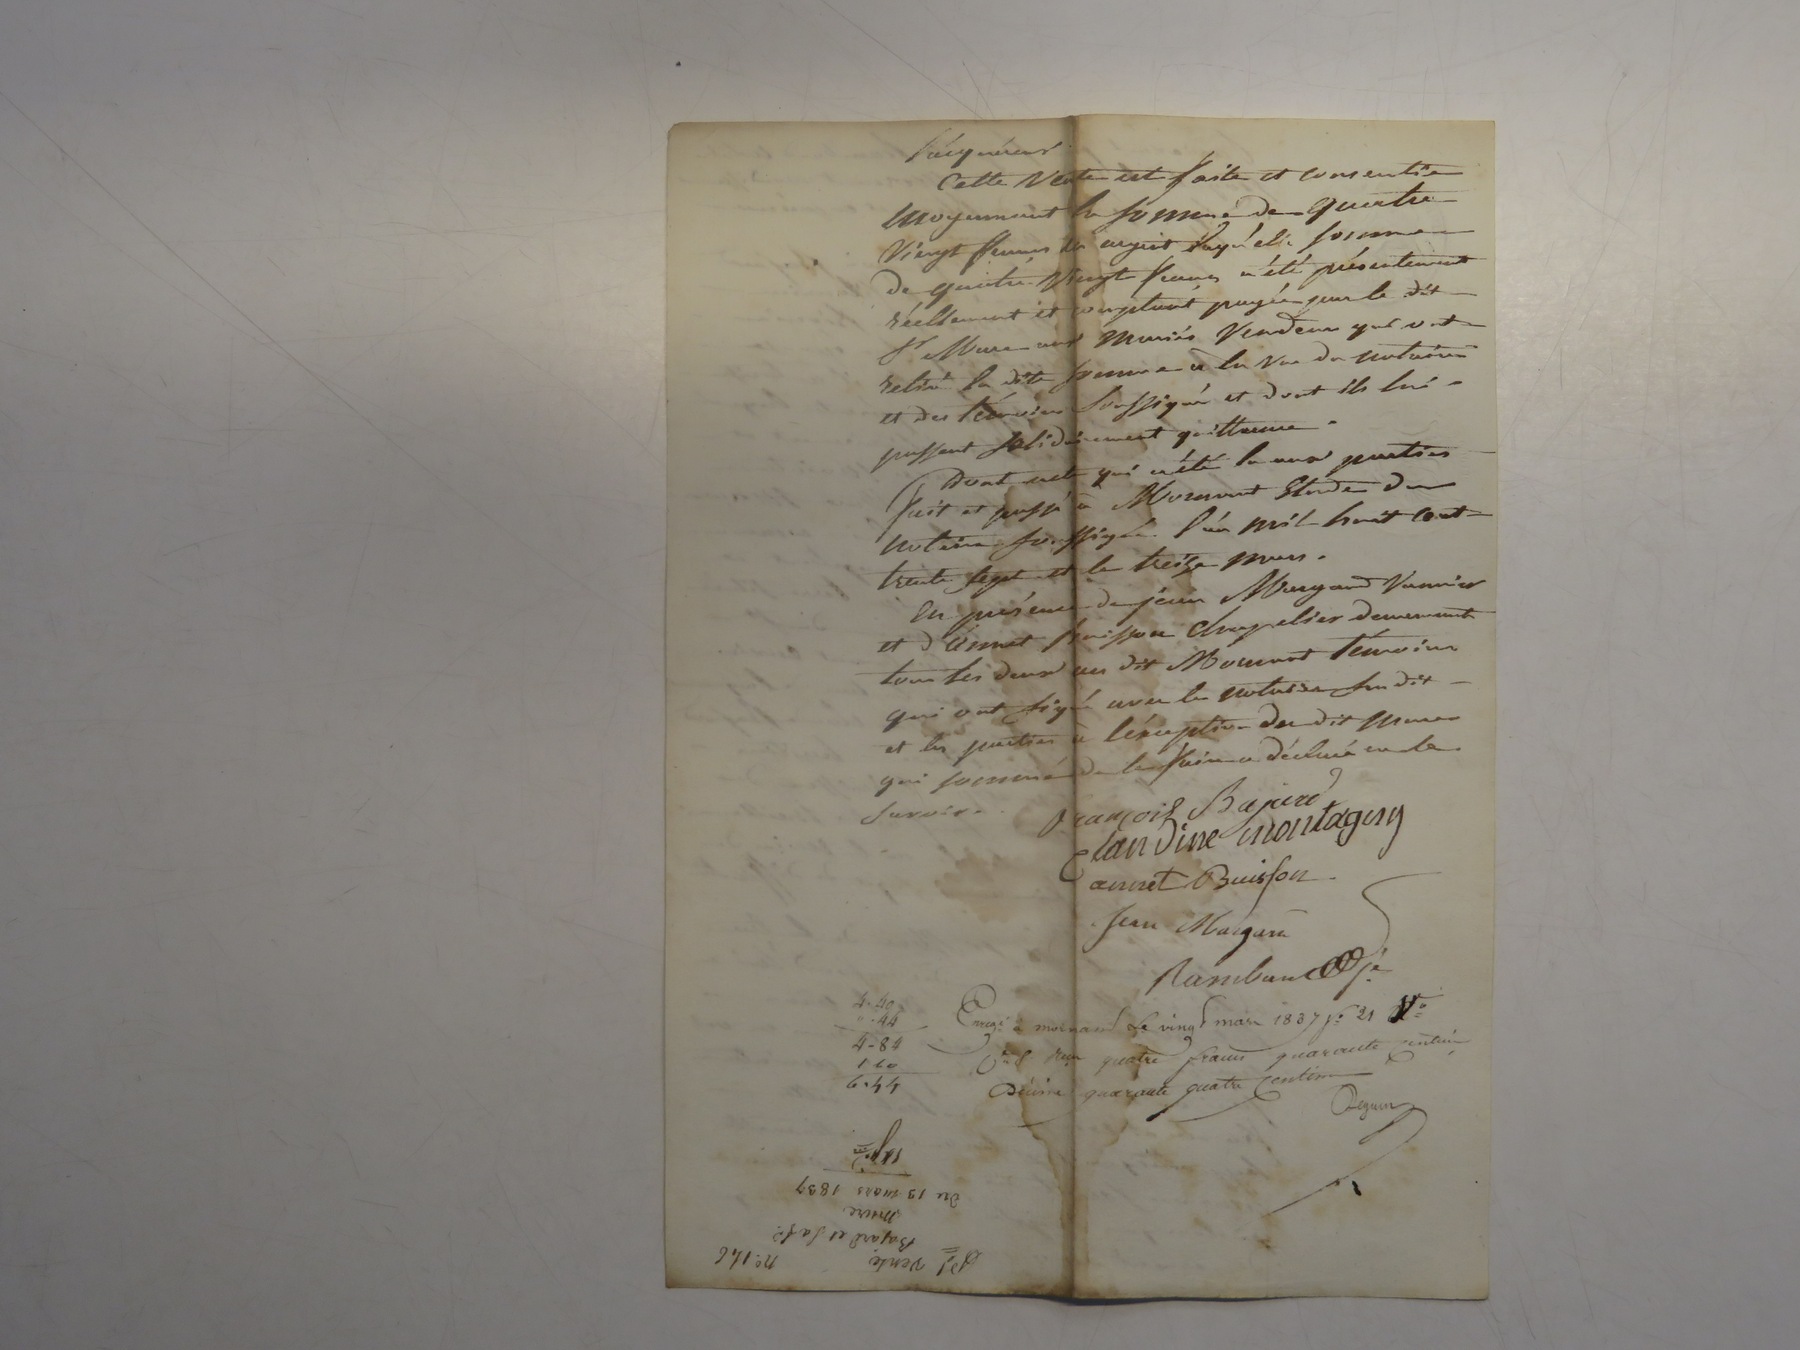 l'acquéreur
Cette Vente est faite et consentie
moyennant la somme de quatre
Vingt francs en argent laquelle somme
de quatre Vingt francs a été présentement
réellement et comptant payée par le dit
Sr Mure aux Mariés Vendeurs qui ont
retiré la dite somme à la vue du notaire
et des témoins soussignés et dont ils lui
passent solidairement quittance.
Dont acte qui a été lu aux parties
fait et passé à Mornant Etude du
notaire soussigné l'an mil huit cent
trente sept et le treize mars.
En présence de jean Margand Vannier
et d'annet buisson chapelier demeurant
tous les deux au dit Mornant témoins
qui ont signé avec le notaire susdit
et les parties à l'éxception du dit Mure
qui sommé de le faire a déclaré ne le
savoir.
françois Bajard
Claudine montagny
annet Buisson
Jean Margand
4-40
"-44
4-84
1 60
6-44
Enregé à mornand le vingt mars 1837 fo 21 Vo
Ce 8 reçu quatre francs quarante centim
Décime quarante quatre centim
Du 13 mars 1837
Mure
Bajard et sa fe
Vente
no. 146